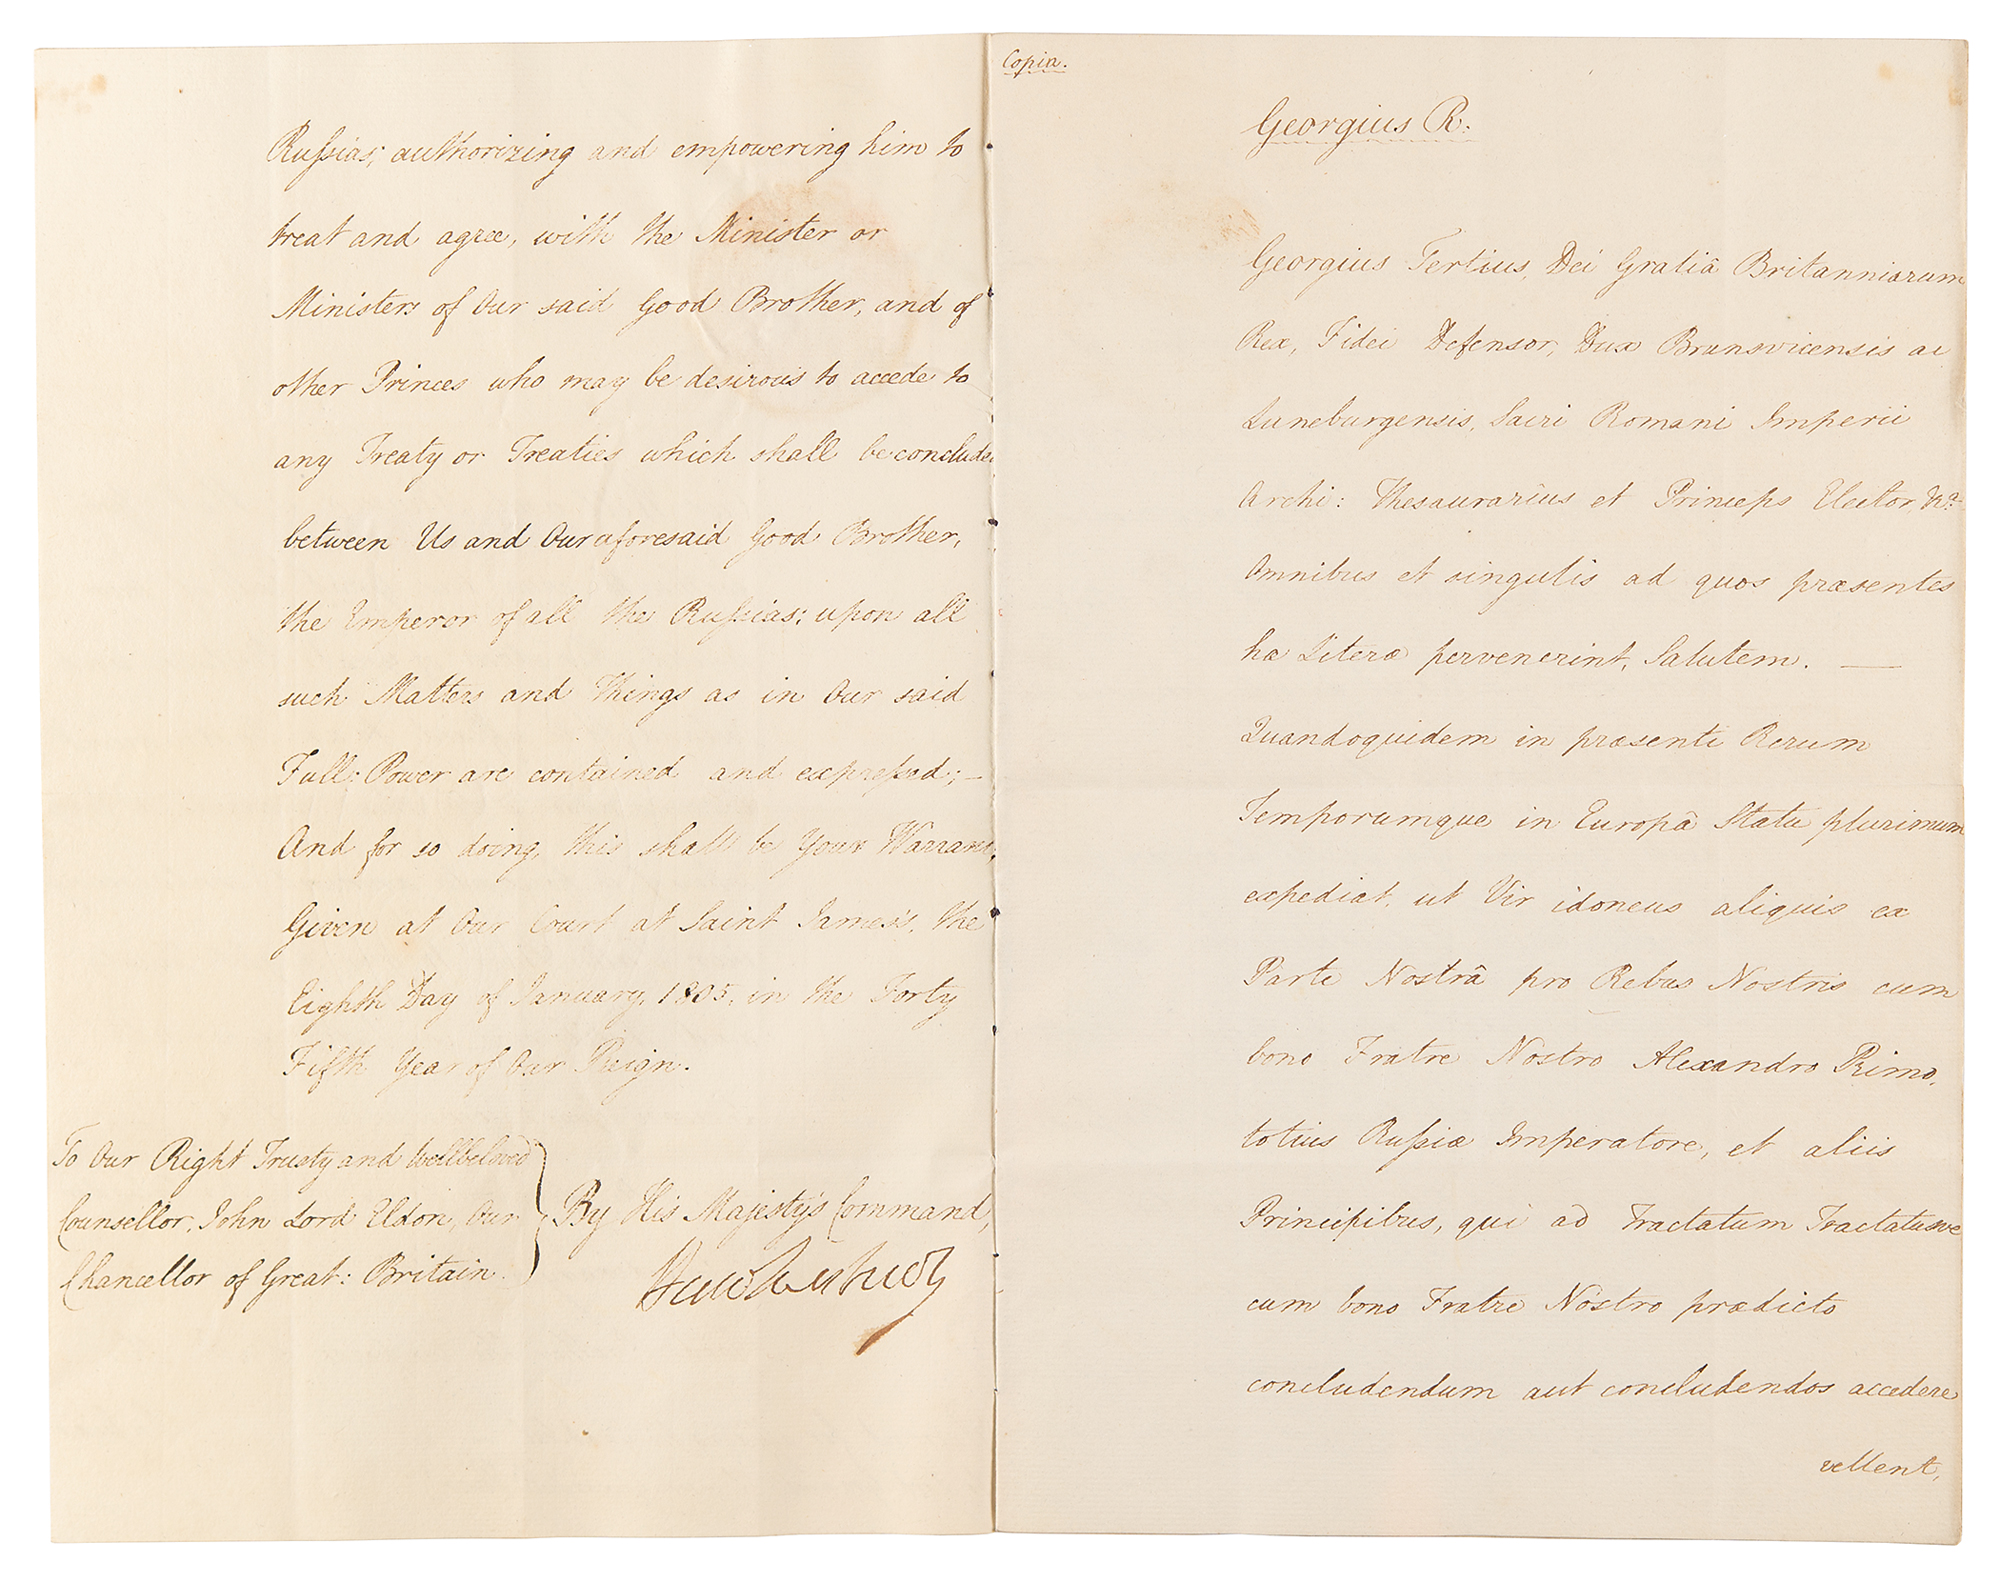 Rußias; authorizing and empowering him to
treat and agree, with the Minister or
Ministers of Our said Good Brother, and of
other Princes who may be desirous to accede to
any Treaty or Treaties which shall be conclude
between Us and Our aforesaid Good Brother,
the Emperor of all the Rußias; upon all
such Matters and Things as in Our said
Full: Power are contained and expreßed; —
And for so doing, this shall be Your Warrant,
Given at Our Court at Saint James's, the
Eighth Day of January, 1805, in the Forty
Fifth Year of Our Reign.
To Our Right Trusty and Wellbeloved
Counsellor, John Lord Eldon, Our
Chancellor of Great: Britain.
By His Majesty's Command,
Copia.
Georgius R.
Georgius Tertius, Dei Gratiâ Britanniarum
Rex, Fidei Defensor, Dux Brunsvicensis ac
Luneburgensis, Sacri Romani Imperii
Archi: Thesaurarius et Princeps Elector, &ca.
Omnibus et singulis ad quos præsentes
hæ Literæ pervenerint, Salutem. —
Quandoquidem in præsenti Rerum
Temporumque in Europâ Statu plurimum
expediat, ut Vir idoneus aliquis ex
Parte Nostrâ pro Rebus Nostris cum
bono Fratre Nostro Alexandro Primo,
totius Rußiæ Imperatore, et aliis
Principibus, qui ad Tractatum Tractatusve
cum bono Fratre Nostro prædicto
concludendum aut concludendos accedere
vellent,